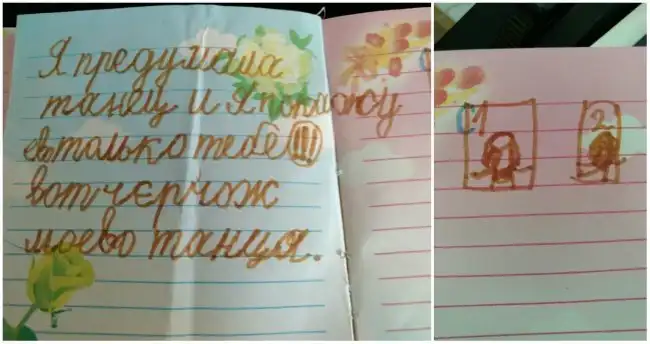 Я предумала
танец и я покажу
ев только тебе!!!
вот чєрчож
моево танца.
1
2